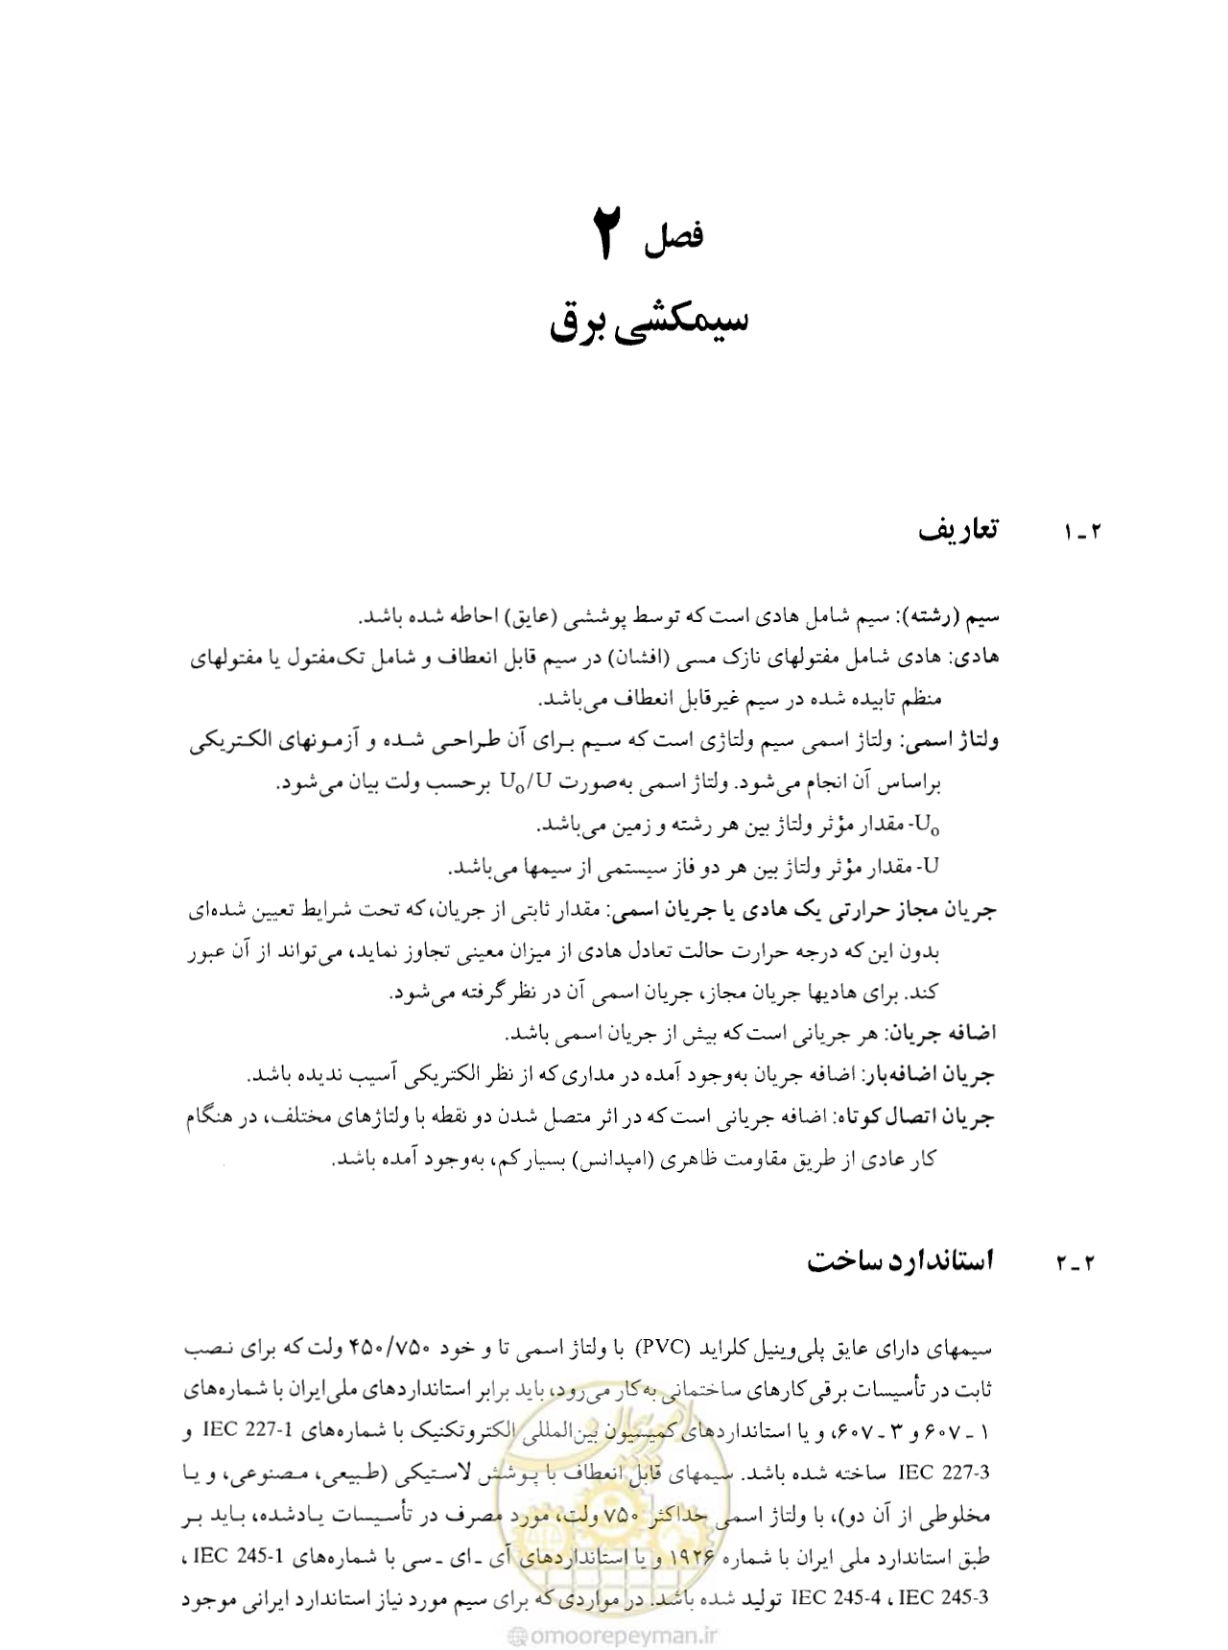 فصل ۲
سیمکشی برق
۲ ـ ۱ تعاریف
سیم (رشته): سیم شامل هادی است که توسط پوششی (عایق) احاطه شده باشد.
هادی: هادی شامل مفتولهای نازک مسی (افشان) در سیم قابل انعطاف و شامل تک‌مفتول یا مفتولهای
منظم تابیده شده در سیم غیرقابل انعطاف می‌باشد.
ولتاژ اسمی: ولتاژ اسمی سیم ولتاژی است که سیم برای آن طراحی شده و آزمونهای الکتریکی
براساس آن انجام می‌شود. ولتاژ اسمی به‌صورت U₀/U برحسب ولت بیان می‌شود.
U₀- مقدار مؤثر ولتاژ بین هر رشته و زمین می‌باشد.
U- مقدار مؤثر ولتاژ بین هر دو فاز سیستمی از سیمها می‌باشد.
جریان مجاز حرارتی یک هادی یا جریان اسمی: مقدار ثابتی از جریان، که تحت شرایط تعیین شده‌ای
بدون این که درجه حرارت حالت تعادل هادی از میزان معینی تجاوز نماید، می‌تواند از آن عبور
کند. برای هادیها جریان مجاز، جریان اسمی آن در نظر گرفته می‌شود.
اضافه جریان: هر جریانی است که بیش از جریان اسمی باشد.
جریان اضافه‌بار: اضافه جریان به‌وجود آمده در مداری که از نظر الکتریکی آسیب ندیده باشد.
جریان اتصال کوتاه: اضافه جریانی است که در اثر متصل شدن دو نقطه با ولتاژهای مختلف، در هنگام
کار عادی از طریق مقاومت ظاهری (امپدانس) بسیار کم، به‌وجود آمده باشد.
۲ ـ ۲ استاندارد ساخت
سیمهای دارای عایق پلی‌وینیل کلراید (PVC) با ولتاژ اسمی تا و خود ۴۵۰/۷۵۰ ولت که برای نصب
ثابت در تأسیسات برقی کارهای ساختمانی به‌کار می‌رود، باید برابر استانداردهای ملی ایران با شماره‌های
۱ ـ ۶۰۷ و ۳ ـ ۶۰۷، و یا استانداردهای کمیسیون بین‌المللی الکتروتکنیک با شماره‌های IEC 227-1 و
IEC 227-3 ساخته شده باشد. سیمهای قابل انعطاف با پوشش لاستیکی (طبیعی، مصنوعی، و یا
مخلوطی از آن دو)، با ولتاژ اسمی حداکثر ۷۵۰ ولت، مورد مصرف در تأسیسات یادشده، باید بر
طبق استاندارد ملی ایران با شماره ۱۹۲۶ و یا استانداردهای آی ـ ای ـ سی با شماره‌های IEC 245-1 ،
IEC 245-4 ، IEC 245-3 تولید شده باشد. در مواردی که برای سیم مورد نیاز استاندارد ایرانی موجود
امور پیمان
omoorepeyman.ir